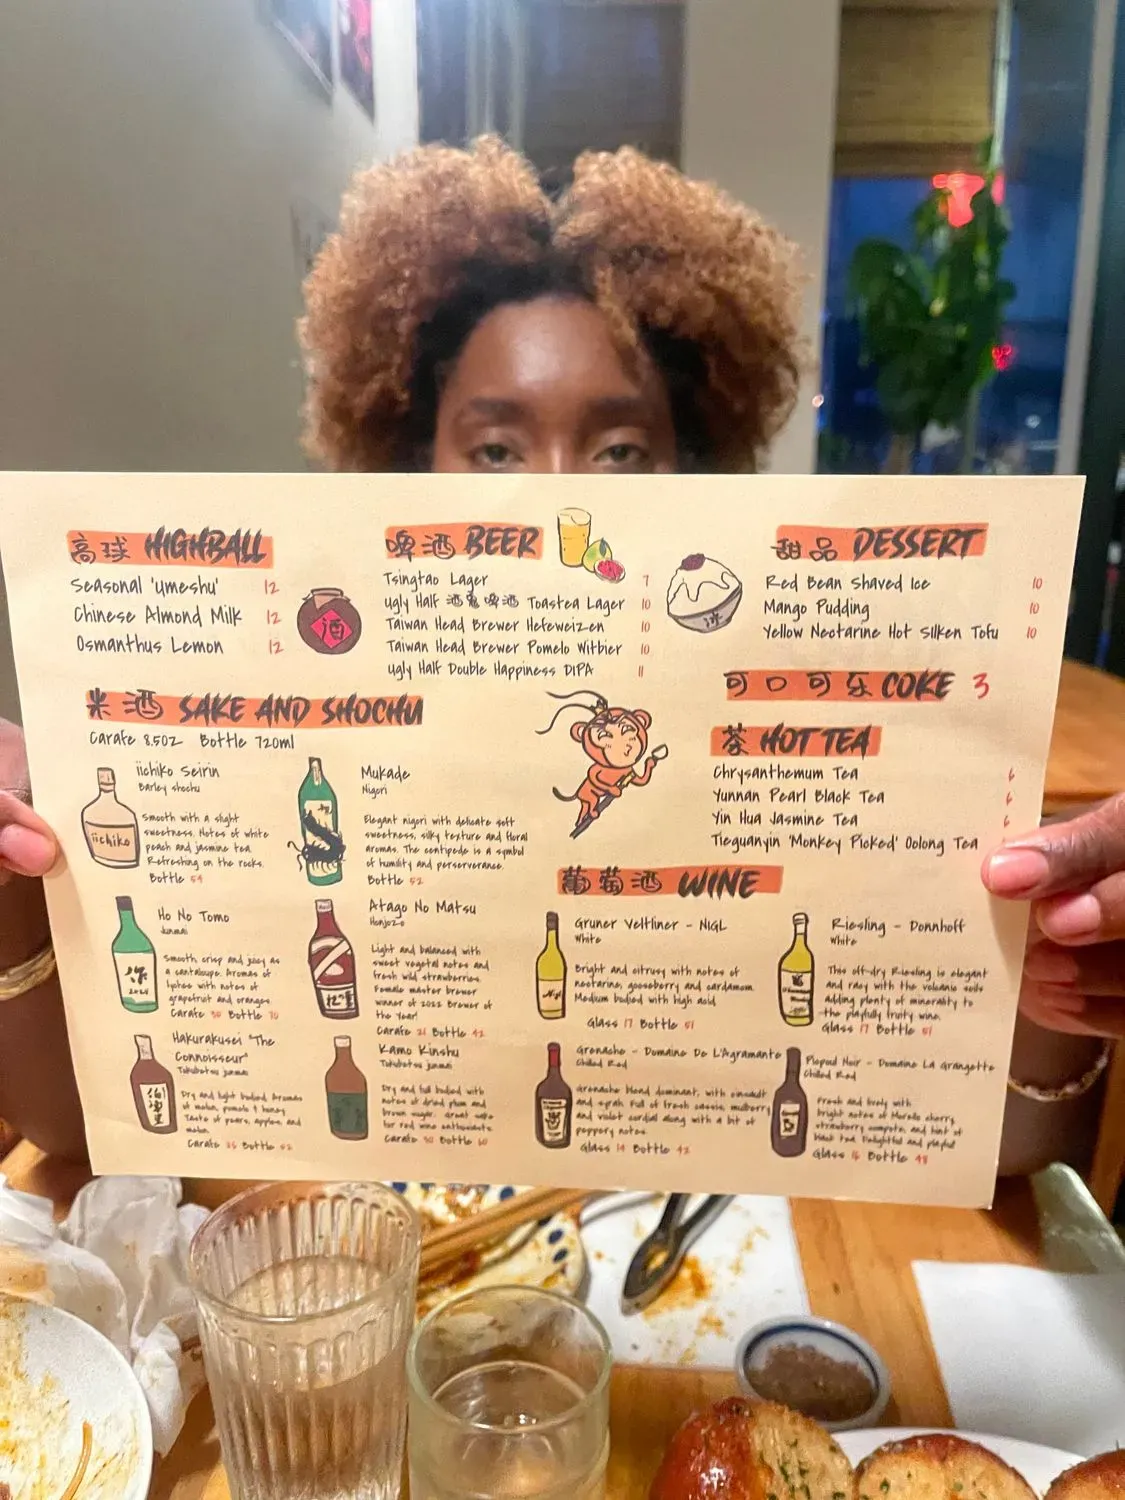 高球 HIGHBALL
Seasonal 'umeshu' 12
Chinese Almond Milk 12
Osmanthus Lemon 12
酒
啤酒 BEER
Tsingtao Lager 7
Ugly Half 酒鬼啤酒 Toasted Lager 10
Taiwan Head Brewer Hefeweizen 10
Taiwan Head Brewer Pomelo Witbier 10
Ugly Half Double Happiness DIPA 11
甜品 DESSERT
Red Bean Shaved Ice 10
Mango Pudding 10
Yellow Nectarine Hot Silken Tofu 10
冰
可口可乐 COKE 3
茶 HOT TEA
Chrysanthemum Tea 6
Yunnan Pearl Black Tea 6
Yin Hua Jasmine Tea 6
Tieguanyin 'Monkey Picked' Oolong Tea
米酒 SAKE AND SHOCHU
Carafe 8.5oz Bottle 720ml
iichiko Seirin
Barley shochu
Smooth with a slight
sweetness. Notes of white
peach and jasmine tea.
Refreshing on the rocks.
Bottle 54
iichiko
Mukade
Nigori
Elegant nigori with delicate soft
sweetness, silky texture and floral
aromas. The centipede is a symbol
of humility and perserverance.
Bottle 52
Ho No Tomo
Junmai
Smooth, crisp and juicy as
a cantaloupe. Aromas of
lychee with notes of
grapefruit and oranges
Carafe 30 Bottle 70
Atago No Matsu
Honjozo
Light and balanced with
sweet vegetal notes and
fresh wild strawberries.
Female master brewer
winner of 2022 Brewer of
the Year!
Carafe 21 Bottle 42
Hakurakusei "The
Connoisseur"
Tokubetsu junmai
Dry and light bodied. Aromas
of melon, pomelo & honey.
Taste of pears, apples, and
melon.
Carafe 26 Bottle 52
Kamo Kinshu
Tokubetsu junmai
Dry and full bodied with
notes of dried plum and
brown sugar. Great sake
for red wine enthusiasts
Carafe 30 Bottle 60
葡萄酒 WINE
Gruner Veltliner - NIGL
White
Bright and citrusy with notes of
nectarine, gooseberry and cardamom.
Medium bodied with high acid
Glass 17 Bottle 51
Nigl
Riesling - Donnhoff
White
This off-dry Riesling is elegant
and racy with the volcanic soils
adding plenty of minerality to
the playfully fruity wine.
Glass 17 Bottle 51
Grenache - Domaine De L'Agramante
Chilled Red
Grenache blend dominant, with cinsault
and syrah. Full of fresh cassis, mulberry
and violet cordial along with a bit of
peppery notes.
Glass 14 Bottle 42
Piepoul Noir - Domaine La Grangette
Chilled Red
Fresh and lively with
bright notes of Morello cherry,
strawberry compote, and hint of
black tea. Delightful and playful
Glass 16 Bottle 48